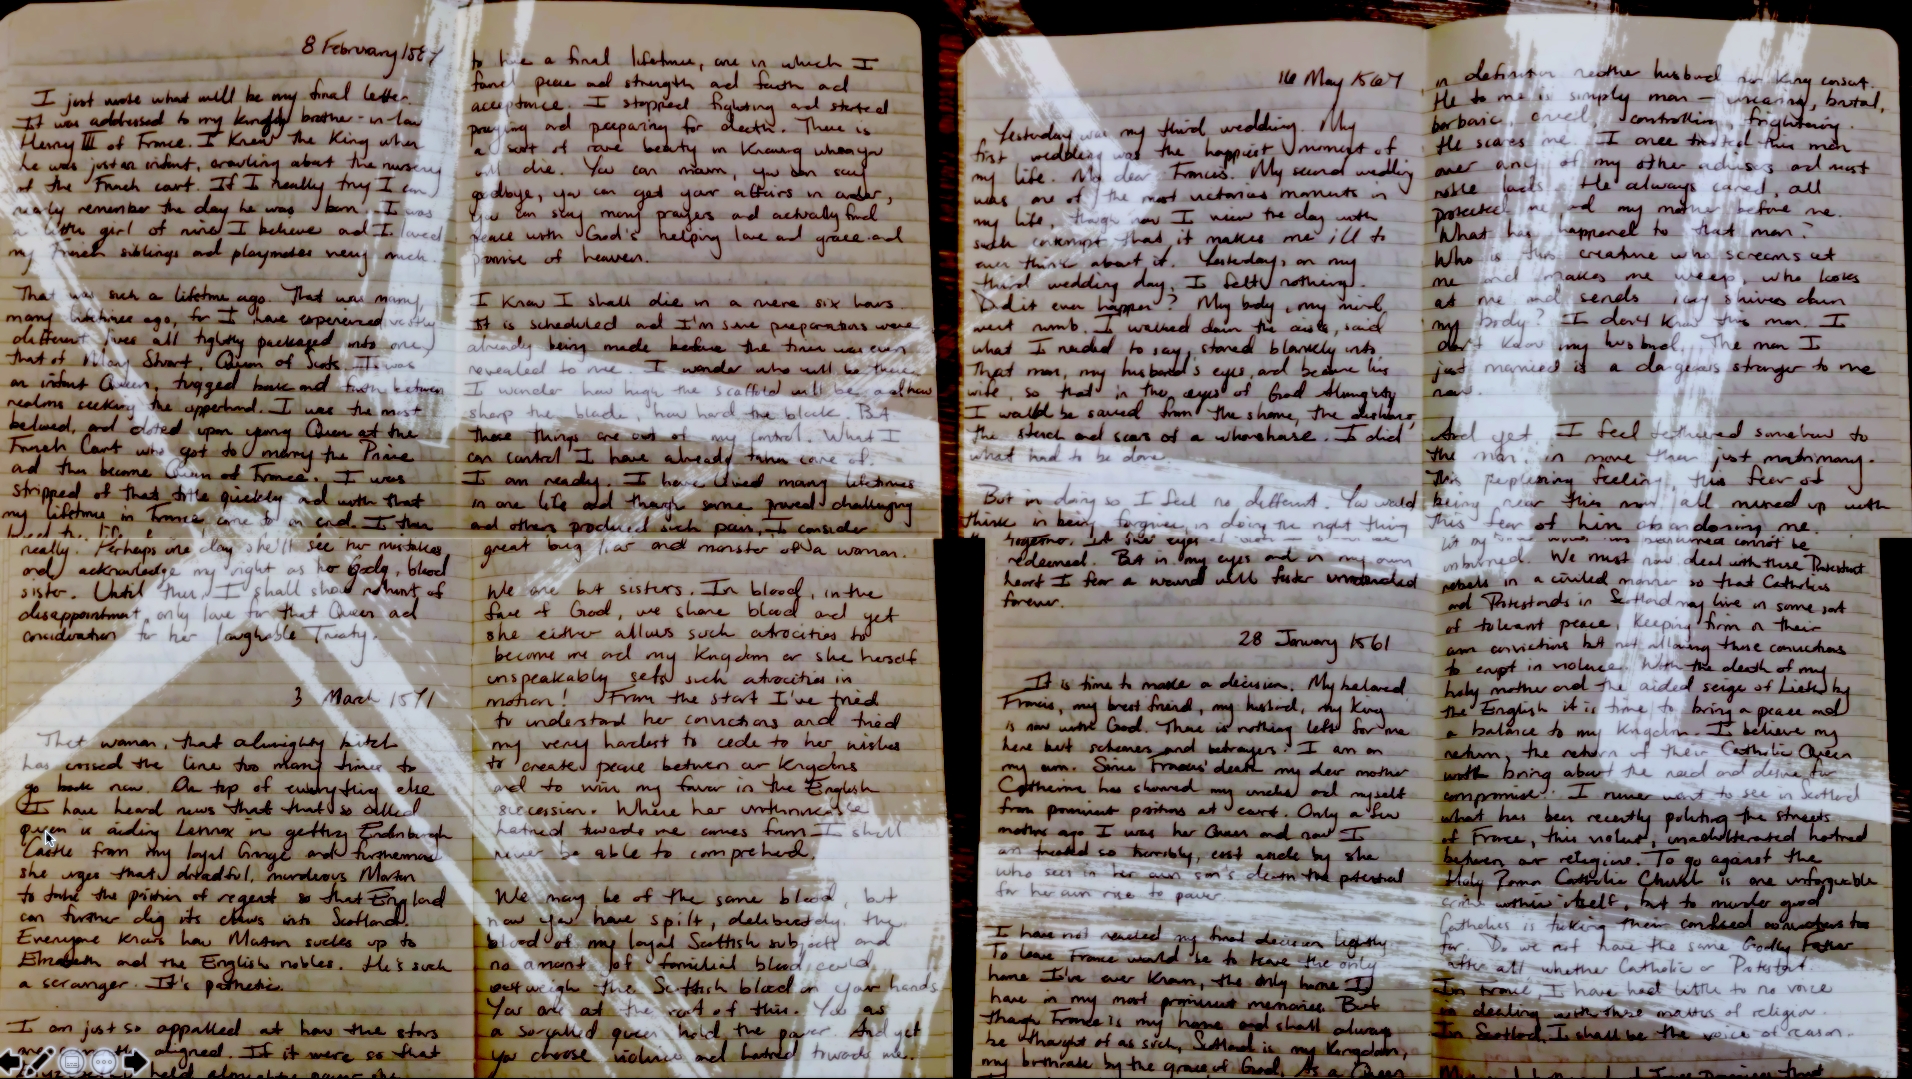 8 February 1587
I just wrote what will be my final letter.
It was addressed to my kingly brother-in-law
Henry III of France. I knew the King when
he was just an infant, crawling about the nursery
of the French court. If I really try I can
nearly remember the day he was born. I was
a little girl of nine I believe and I loved
my French siblings and playmates very much.
That was such a lifetime ago. That was many,
many lifetimes ago, for I have experienced vastly
different lives all tightly packaged into one,
that of Mary Stuart, Queen of Scots. It was
an infant Queen, tugged back and forth between
realms seeking the upperhand. I was the most
beloved, and doted upon young Queen at the
French Court who got to marry the Prince
and thus become Queen of France. I was
stripped of that title quickly and with that
my lifetime in France came to an end. I then
to live a final lifetime, one in which I
found peace and strength and faith and
acceptance. I stopped fighting and started
praying and preparing for death. There is
a sort of rare beauty in knowing when you
will die. You can mourn, you can say
goodbye, you can get your affairs in order,
you can say many prayers and actually find
peace with God's helping love and grace and
promise of heaven.
I know I shall die in a mere six hours.
It is scheduled and I'm sure preparations were
already being made before the time was even
revealed to me. I wonder who will be there.
I wonder how high the scaffold will be and how
sharp the blade, how hard the block. But
those things are out of my control. What I
can control I have already taken care of.
I am ready. I have lived many lifetimes
in one life and though some proved challenging
and others produced such pain, I consider
16 May 1567
Yesterday was my third wedding. My
first wedding was the happiest moment of
my life. My dear Francis. My second wedding
was one of the most victorious moments in
my life, though now I view the day with
such contempt that it makes me ill to
even think about it. Yesterday, on my
third wedding day, I felt nothing.
Did it even happen? My body, my mind,
went numb. I walked down the aisle, said
what I needed to say, stared blankly into
that man, my husband's eyes, and became his
wife, so that in the eyes of God Almighty
I would be saved from the shame, the dishonor,
the stench and scars of a whorehouse. I did
what had to be done.
But in doing so I feel no different. You would
think in being forgiven, in doing the right thing
in definition neither husband nor king consort.
He to me is simply man – uncaring, brutal,
barbaric, cruel, controlling, frightening.
He scares me. I once trusted this man
over any of my other advisors and most
noble lads. He always cared, all
protected me and my mother before me.
What has happened to that man?
Who is this creature who screams at
me and makes me weep, who looks
at me and sends icy shivers down
my body? I don't know this man. I
don't know my husband. The man I
just married is a dangerous stranger to me
now.
And yet, I feel tethered somehow to
the man, in more than just matrimony.
This perplexing feeling, this fear of
being near this man, all mixed up with
this fear of him abandoning me.
really. Perhaps one day she'll see her mistakes
and acknowledge my right as her Godly, blood
sister. Until then, I shall show no hint of
disappointment, only love for that Queen and
consideration for her laughable Treaty.
3 March 1571
That woman, that almighty bitch
has crossed the line too many times to
go back now. On top of everything else
I have heard news that that so called
queen is aiding Lennox in getting Edinburgh
Castle from my loyal Grange and furthermore
she urges that dreadful, murderous Morton
to take the position of regent so that England
can further dig its claws into Scotland.
Everyone knows how Morton sucks up to
Elizabeth and the English nobles. He's such
a scranger. It's pathetic.
I am just so appalled at how the stars
aligned. If it were so that
great big liar and monster of a woman.
We are but sisters. In blood, in the
face of God, we share blood and yet
she either allows such atrocities to
become me and my Kingdom or she herself
unspeakably sets such atrocities in
motion! From the start I've tried
to understand her convictions and tried
my very hardest to cede to her wishes
to create peace between our Kingdoms
and to win my favor in the English
succession. Where her unthinkable
hatred towards me comes from I shall
never be able to comprehend.
We may be of the same blood, but
now you have spilt, deliberately, the
blood of my loyal Scottish subjects and
no amount of familial blood could
outweigh the Scottish blood on your hands.
You are at the root of this. You as
a so called queen hold the power. And yet
you choose violence and hatred towards me.
redeemed. But in my eyes and in my own
heart I fear a wound will fester unmended
forever.
28 January 1561
It is time to make a decision. My beloved
Francis, my best friend, my husband, my King
is now with God. There is nothing left for me
here but schemers and betrayers. I am on
my own. Since Francis' death my dear mother
Catherine has shoved my uncles and myself
from prominent positions at court. Only a few
months ago I was her Queen and now I
am treated so horribly, cast aside by she
who sees in her own son's death the potential
for her own rise to power.
I have not reached my final decision lightly.
To leave France would be to leave the only
home I've ever known, the only home I
have in my most prominent memories. But
though France is my home and shall always
be thought of as such, Scotland is my Kingdom,
my birthrate by the grace of God. As a Queen
unburned. We must now deal with these Protestant
rebels in a civiled manner so that Catholics
and Protestants in Scotland may live in some sort
of tolerant peace, keeping firm in their
own convictions but not allowing those convictions
to erupt in violence. With the death of my
holy mother and the aided seige of Lieth by
the English it is time to bring a peace and
a balance to my kingdom. I believe my
return, the return of their Catholic Queen
will bring about the need and desire for
compromise. I never want to see in Scotland
what has been recently polluting the streets
of France, this violent, unadulterated hatred
between our religions. To go against the
Holy Roman Catholic Church is one unforgivable
crime within itself, but to murder good
Catholics is taking their confused convictions too
far. Do we not have the same Godly Father
after all whether Catholic or Protestant.
In France, I have had little to no voice
in dealing with these matters of religion.
In Scotland, I shall be the voice of reason.